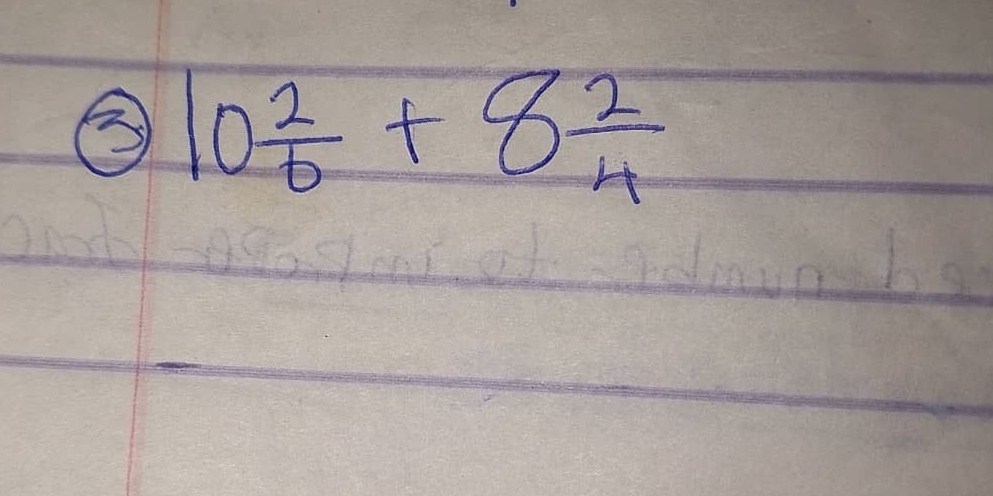 ③ 10 2/6 + 8 2/4